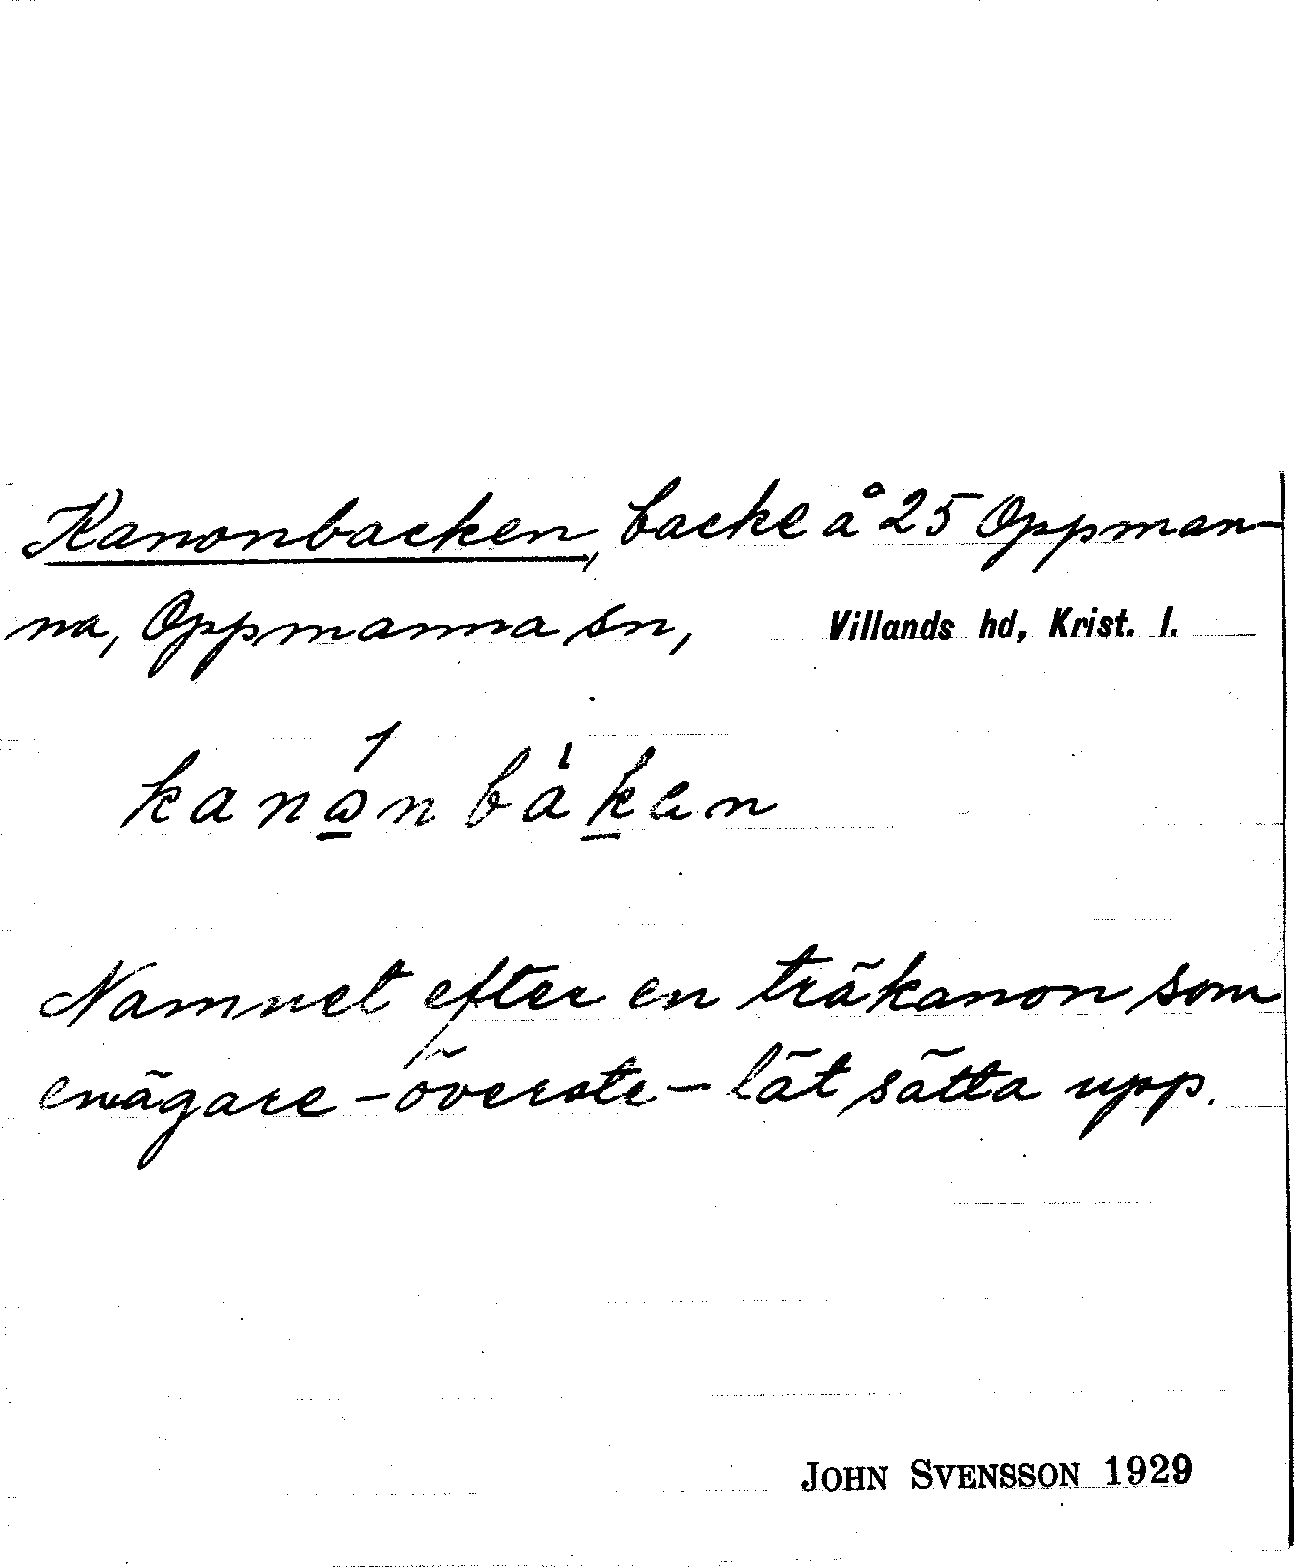 Kanonbacken, backe å 25 Oppman-
na, Oppmanna sn, Villands hd, Krist. l.
kanωńn bàkan
Namnet efter en träkanon som
en ägare – överste – lät sätta upp.
JOHN SVENSSON 1929